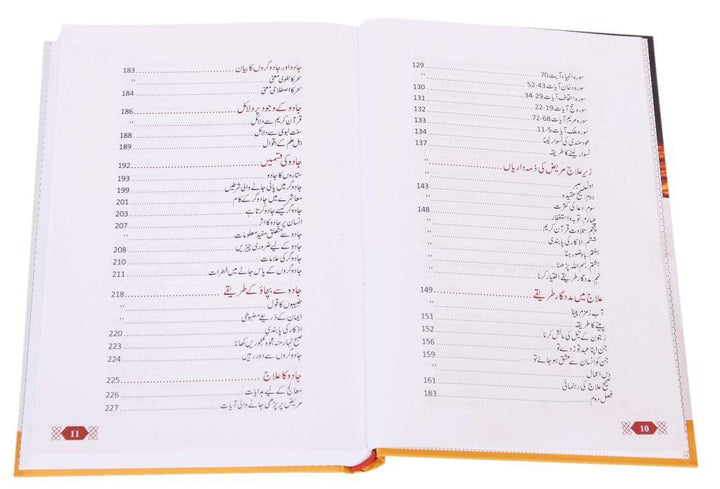 سورہ انبیاء آیت 70 129
سورہ دخان آیات 43-52 ,,
سورہ احقاف آیات 29-34 130
سورہ حج آیات 19-22 131
سورہ مریم آیات 68-72 132
سورہ ملک آیات 5-11 133
عود ہندی کی نسوار لینا 134
نسوار لینے کا طریقہ 137
زیر علاج مریض کی ذمہ داریاں ,,
اول: صبر
دوم: صحیح عقیدہ 143
سوم: دعا کی کثرت ,,
چہارم: توبہ و استغفار 148
پنجم: تلاوت قرآن کریم ,,
ششم: اذکار کی پابندی ,,
ہفتم: باوضو رہنا ,,
ہشتم: بسم اللہ پڑھنا ,,
نہم: مددگار طریقے اختیار کرنا ,,
علاج میں مددگار طریقے 149
آب زمزم پینا
پینے کا طریقہ 151
زیتون کے تیل کی مالش کرنا 152
جن اپنا عہد توڑ دے تو 156
جن کو انسان سے عشق ہو جائے تو 159
دس اعمال ,,
صحیح علاج کی رہنمائی 161
فصل دوم 183
10
جادو اور جادوگروں کا بیان 183
سحر کا لغوی معنی ,,
سحر کا اصطلاحی معنی 184
جادو کے وجود پر دلائل 186
قرآن کریم سے دلائل ,,
سنت نبوی سے دلائل 188
اہل علم کے اقوال 189
جادو کی قسمیں 192
ستاروں کا جادو 193
جادوگر میں پائی جانے والی شرطیں 199
معاشرے میں جادوگر کے کام 201
جادوگر کیسے جادو کرتا ہے 203
انسان پر جادو کا اثر 207
جادو سے متعلق مفید معلومات ,,
جادو کے لیے ضروری چیزیں 208
جادوگر کی علامات 210
جادوگر کے پاس جانے میں خطرات 211
جادو سے بچاؤ کے طریقے 218
طبیبوں کا قول ,,
ایمان کے ذریعے مضبوطی ,,
اذکار کی پابندی 220
صبح نہار منہ عجوہ کھجوریں کھانا 223
جادوگروں سے دور رہیں 224
جادو کا علاج 225
معالج کے لیے ہدایات 226
مریض پر پڑھی جانے والی آیات 227
11